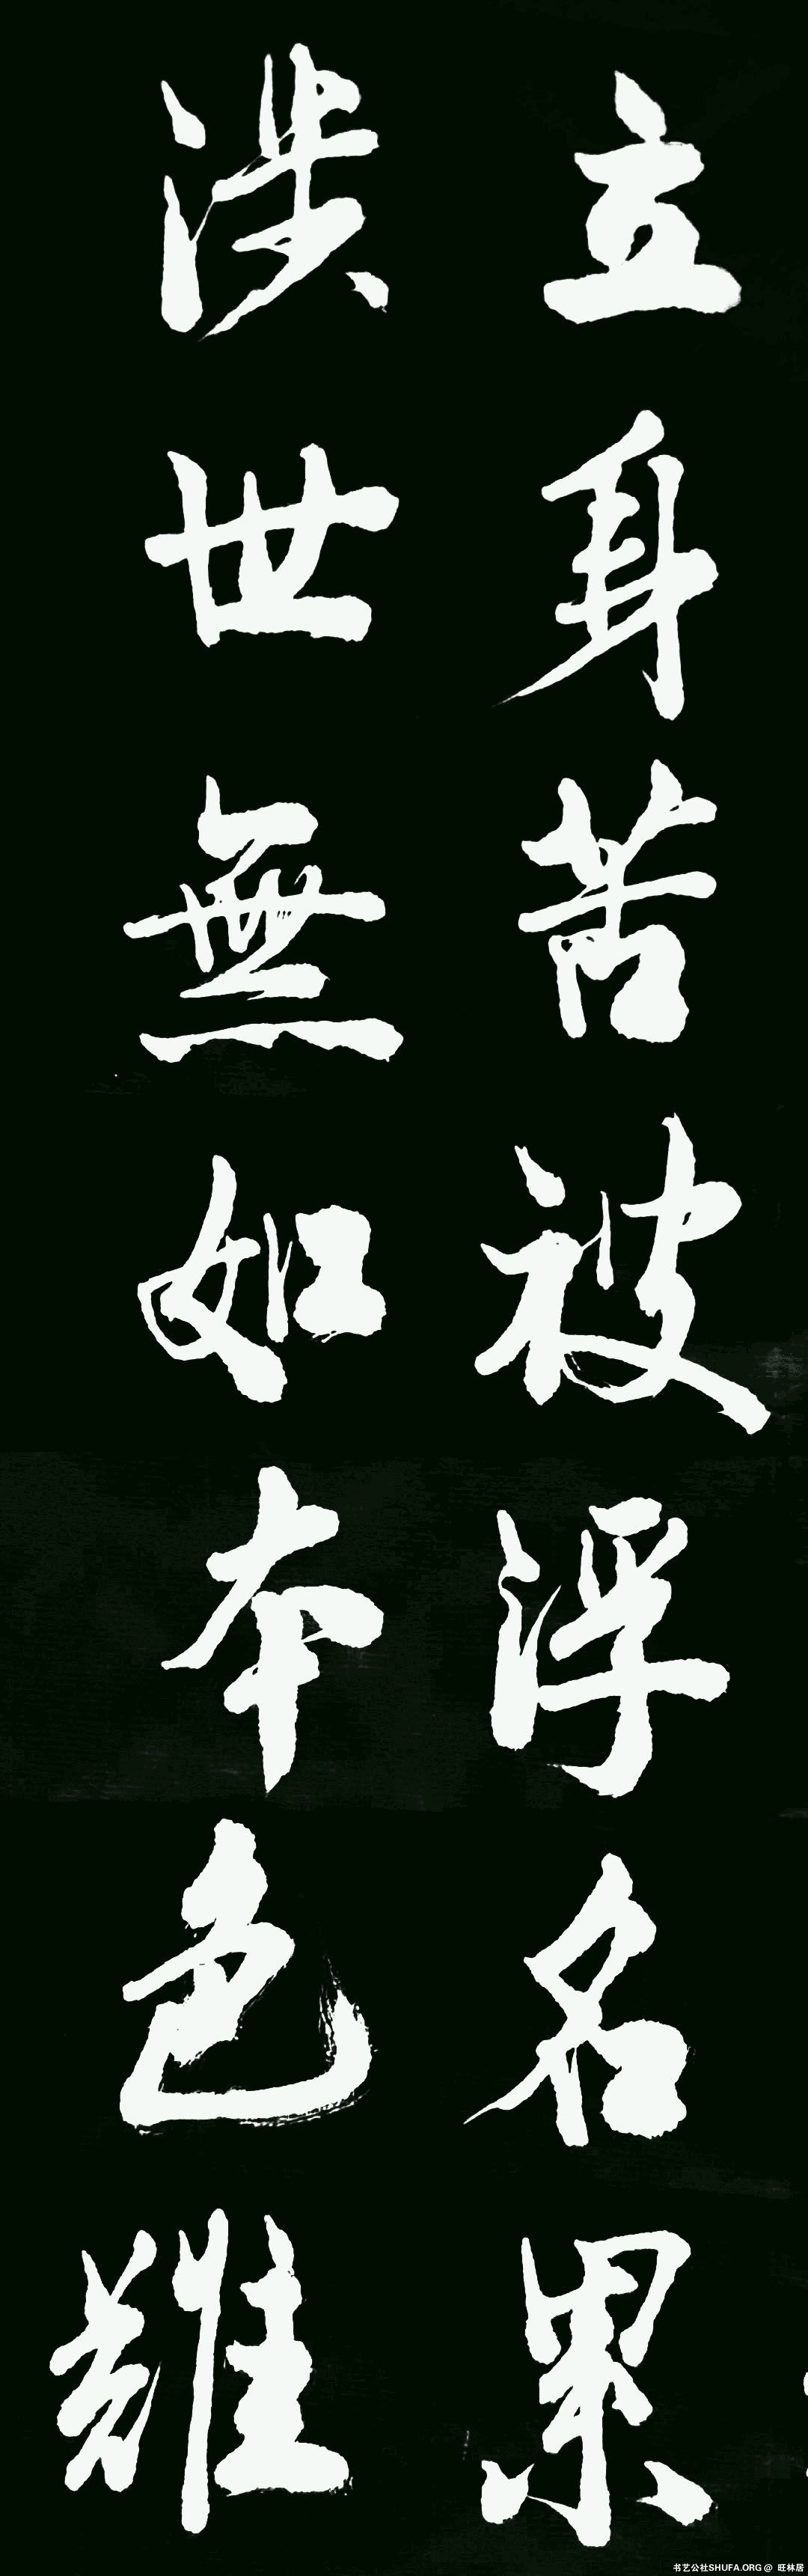 立身苦被浮名累
涉世無如本色難
书艺公社SHUFA.ORG @ 旺林居